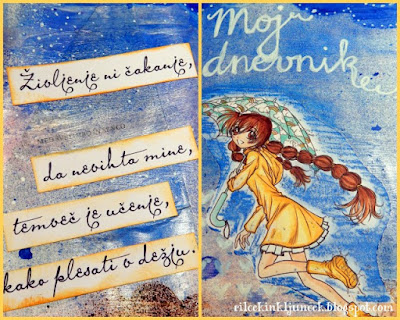 Življenje ni čakanje,
da nevihta mine,
temveč je učenje,
kako plesati v dežju.
Moj
dnevnik
rilcekinkljuncek.blogspot.com